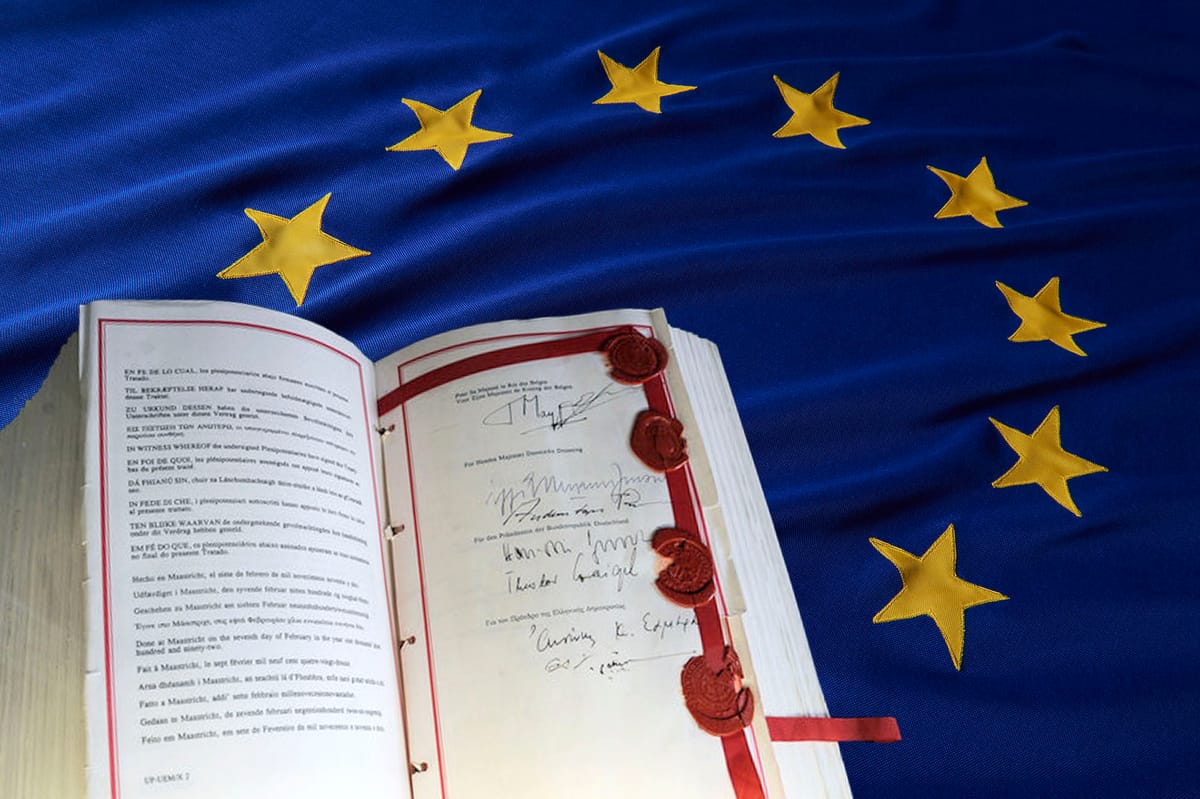 EN FE DE LO CUAL, los plenipotenciarios abajo firmantes suscriben el presente
Tratado.
TIL BEKRÆFTELSE HERAF har undertegnede befuldmægtigede underskrevet
denne Traktat.
ZU URKUND DESSEN haben die unterzeichneten Bevollmächtigten ihre
Unterschriften unter diesen Vertrag gesetzt.
ΕΙΣ ΠΙΣΤΩΣΗ ΤΩΝ ΑΝΩΤΕΡΩ, οι υπογεγραμμένοι πληρεξούσιοι υπέγραψαν την
παρούσα συνθήκη.
IN WITNESS WHEREOF the undersigned Plenipotentiaries have signed this Treaty.
EN FOI DE QUOI, les plénipotentiaires soussignés ont apposé leurs signatures au
bas du présent traité.
DÁ FHIANÚ SIN, chuir na Lánchumhachtaigh thíos-sínithe a lámh leis an gConradh
seo.
IN FEDE DI CHE, i plenipotenziari sottoscritti hanno apposto le loro firme in calce
al presente trattato.
TEN BLIJKE WAARVAN de ondergetekende gevolmachtigden hun handtekening
onder dit Verdrag hebben gesteld.
EM FÉ DO QUE, os plenipotenciários abaixo assinados apuseram as suas assinaturas
no final do presente Tratado.
Hecho en Maastricht, el siete de febrero de mil novecientos noventa y dos.
Udfærdiget i Maastricht, den syvende februar nitten hundrede og
Geschehen zu Maastricht am siebten Februar neunzehnhundertzweiundneunzig.
Έγινε στο Μάαστριχτ, στις εφτά Φεβρουαρίου χίλια εννιακόσια ενενήντα δύο.
Done at Maastricht on the seventh day of February in the year one thousand nine
hundred and ninety-two.
Fait à Maastricht, le sept février mil neuf cent quatre-vingt-douze.
Arna dhéanamh i Maastricht, an seachtú lá d'Fheabhra, míle naoi gcéad nócha a dó.
Fatto a Maastricht, addì' sette febbraio millenovecentonovantadue.
Gedaan te Maastricht, de zevende februari negentienhonderd twee-en-negentig.
Feito em Maastricht, em sete de Fevereiro de mil novecentos e noventa e dois.
UP-UEM/X 2
Pour Sa Majesté le Roi des Belges
Voor Zijne Majesteit de Koning der Belgen
For Hendes Majestæt Danmarks Dronning
Für den Präsidenten der Bundesrepublik Deutschland
Theodor Waigel
Για τον Πρόεδρο της Ελληνικής Δημοκρατίας